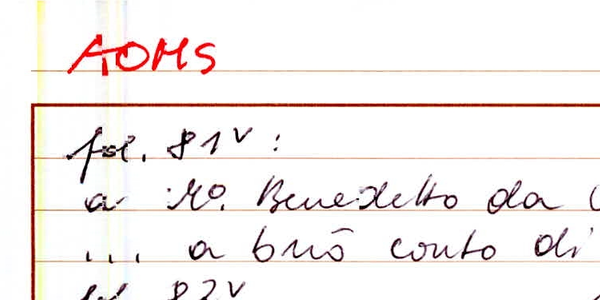 AOMS
fol. 81v:
a Mo. Benedetto da
... a buõ conto di
fol. 82v